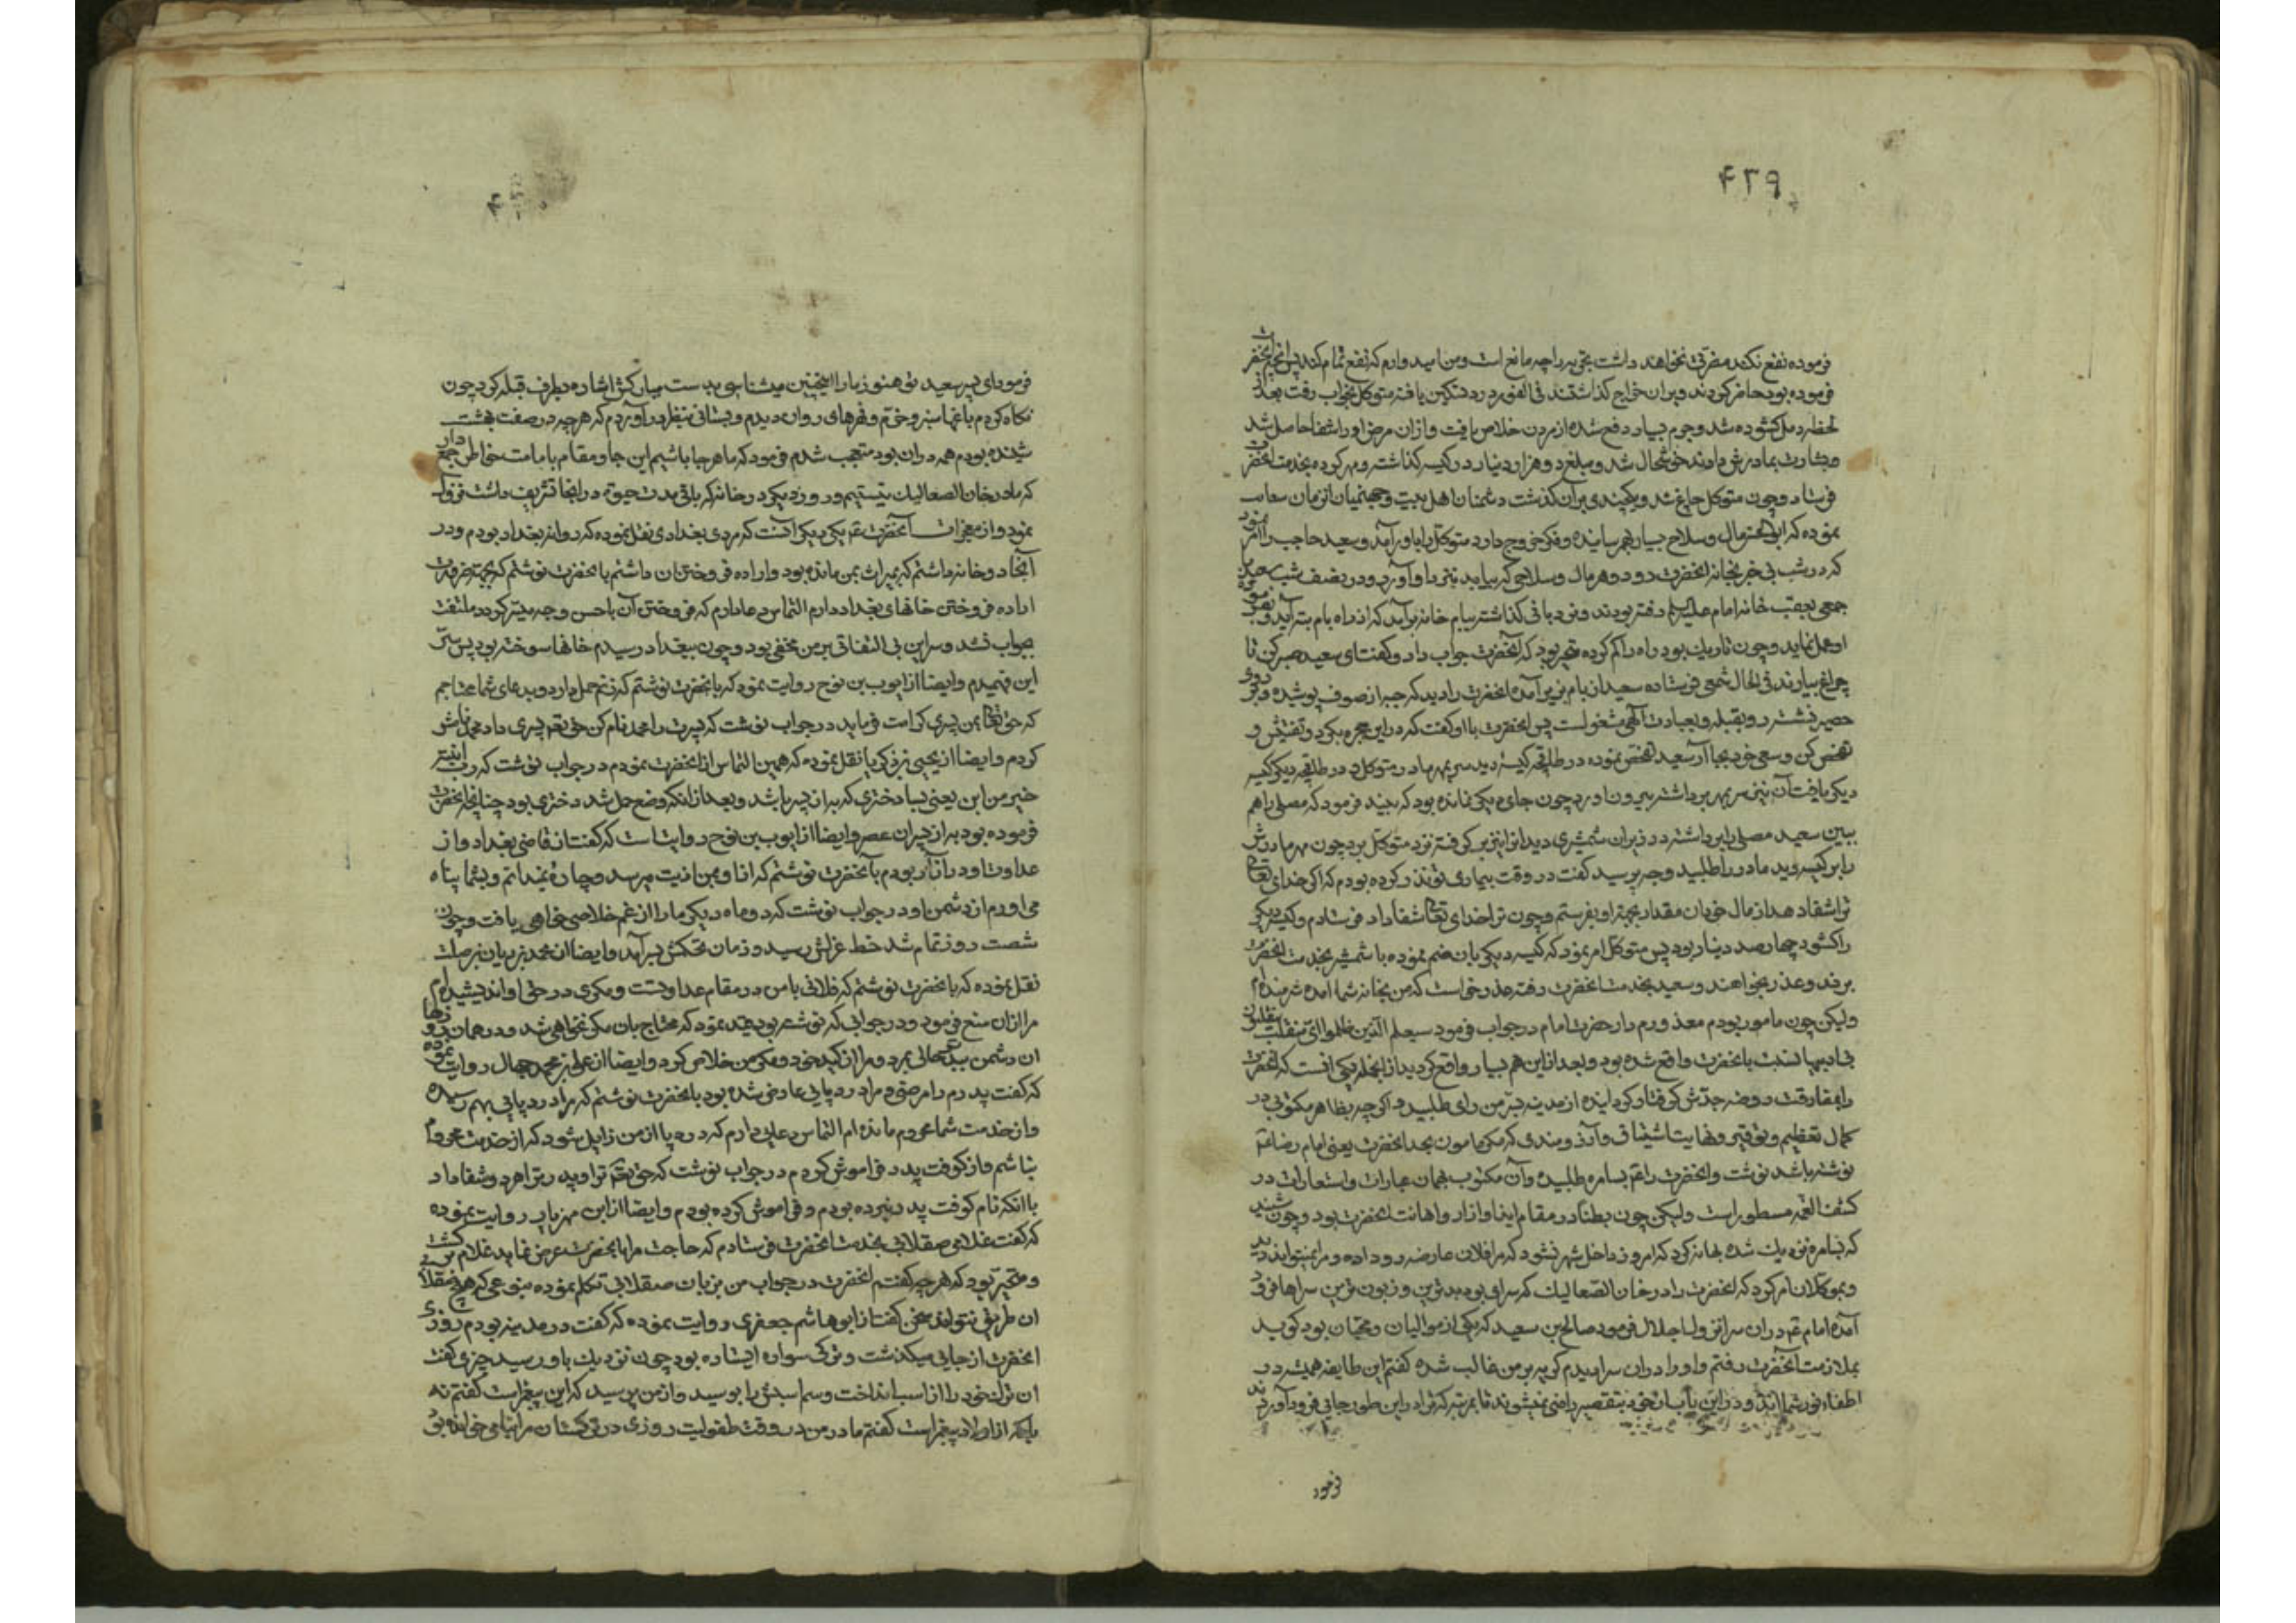 ۴۲۹
فرموده نفع نکند مضرتی نخواهند داشت تجربه را چه مانع است و من امیدوارم که نفع تمام کند پس آنچه آنحضرت
فرموده بود حاضر کردند و بران خراج گذاشتند فی الفور درد تسکین یافته متوکل بخواب رفت بعد از
لحظه دمل کشوده شد و جرم بسیار دفع شده از مردن خلاص یافت و ازان مرض او را شفا حاصل شد
و بشارت بمادرش دادند خوشحال شد و مبلغ دو هزار دینار در کیسه گذاشته و مهر کرده بخدمت آنحضرت
فرستاد و چون متوکل چاغ شد و یکچندی بران گذشت دشمنان اهل بیت و جهنمیان انزمان سعایت
نموده که ابوالحسن مال و سلاح بسیار بهم رسانیده و فکر خروج دارد متوکل را باور آمد و سعید حاجب را امر نمود
که در شب بی خبر بخانه آنحضرت رود و هر مال و سلاحی که بیابد بنزد او آورد و در نصف شب سعید با
جمعی بعقب خانه امام علیه السلم رفته بودند و نردبانی گذاشته ببام خانه برآمد که از راه بام بته آید و بفرموده
او عمل نماید و چون تاریک بود راه را گم کرده متحیر بود که آنحضرت جواب داد و گفت ای سعید صبر کن تا
چراغ بیارند فی الحال شمعی فرستاده سعید از بام بزیر آمده آنحضرت را دید که جبه از صوف پوشیده و بر روی
حصیر نشسته رو بقبله و بعبادت الهی مشغولست پس آنحضرت با او گفت که در این حجره بگرد و تفتیش و
تفحص کن و سعی خود بجا آر سعید تفحص نموده در طاقچه کیسه دید سر بمهر مادر متوکل و در طاقچه دیگر کیسه
دیگر یافت آن نیز سر بمهر برداشته بیرون آورد چون جای دیگر نمانده بود که ببیند فرمود که مصلی را هم
ببین سعید مصلی را برداشته در زیر ان شمشیری دید انرا نیز برگرفته نزد متوکل برد چون مهر مادرش
را بر کیسه دید مادر را طلبید وجه پرسید گفت در وقت بیماری تو نذر کرده بودم که اگر خدای تعالی
ترا شفا دهد از مال خود بان مقدار بجهة او بفرستم و چون ترا خدای تعالی شفا داد فرستادم و کیسه دیگر
را کشود چهار صد دینار بود پس متوکل امر نمود که کیسه دیگر بان ضم نموده با شمشیر بخدمت آنحضرت
بردند و عذر بخواهند و سعید بخدمت آنحضرت رفته عذر خواست که من بخانه شما امده شرمنده ام
ولیکن چون مامور بودم معذورم دار حضرت امام در جواب فرمود سیعلم الذین ظلموا ای منقلب ینقلبون
بی ادبیها نسبت بانحضرت واقع شده بود و بعد از این هم بسیار واقع گردید از انجمله یکی انست که آنحضرت
را بمفارقت روضه جدش گرفتار گردانیده از مدینه بسر من رای طلبید و اگرچه بظاهر مکتوب در
کمال تعظیم و توقیر و نهایت اشتیاق و آرزومندی که مکر مامون بجد آنحضرت یعنی امام رضا ع
نوشته باشد نوشت و آنحضرت را ع بسامره طلبیده و آن مکتوب بهمان عبارات و استعارات در
کشف الغمه مسطور است ولیکن چون بطنا در مقام ایذا و ازار و اهانت آنحضرت بود و چون شنید
که بسامره نزدیک شده بهانه کرد که امروز داخل شهر نشود که مرا فلان عارضه رو داده و مرا نمیتواند دید
و بموکلان امر کرد که آنحضرت را در خان الصعالیک که سرای بود بدترین و زبون ترین سراها فرود
آمده امام ع دران سرا نزول اجلال فرمود صالح بن سعید که یکی از موالیان و محبان بود گوید
بملازمت آنحضرت رفتم و او را دران سرا دیدم گریه بر من غالب شده گفتم این طایفه همیشه در
اطفاء نور شمااند و در این باب از خود بتقصیر راضی نمیشوند تا بمرتبه که ترا در این طور جایی فرود آوردند
فرمود
فرمود ای پسر سعید تو هنوز ما را اینچنین میشناسی بدست مبارکش اشاره بطرف قبله کرد چون
نگاه کردم باغها سبز و خرم و نهرهای روان دیدم و بستانی بنظر در آوردم که هر چه در صفت بهشت
شنیده بودم همه دران بود متعجب شدم فرمود که ما هر جا باشیم این جا و مقام با ما است خاطر جمع دار
که ما در خان الصعالیک نیستیم و روز دیگر در خانه که باقی مدت حیوة در انجا تشریف داشت نزول
نمود و از معجزات آنحضرت ع یکی دیگر آنست که مردی بغدادی نقل نموده که روانه بغداد بودم و در
آنجا دو خانه داشتم که بمیراث بمن مانده بود و اراده فروختن ان داشتم بانحضرت نوشتم که بجهة ضرورت
اراده فروختن خانهای بغداد دارم التماس دعا دارم که فروختن آن باحسن وجه میسر گردد ملتفت
بجواب نشد و سر این بی التفاتی بر من مخفی بود و چون ببغداد رسیدم خانها سوخته بود پس سر
این فهمیدم و ایضا از ایوب بن نوح روایت نمود که بانحضرت نوشتم که زنم حمل دارد و بدعای شما محتاجم
که حق تعالی بمن پسری کرامت فرماید در جواب نوشت که پسرت را محمد نام کن حق تعالی پسری داد محمد نامش
کردم و ایضا از یحیی بن زکریا نقل نموده که همین التماس از آنحضرت نمودم در جواب نوشت که رب ابنته
خیر من ابن یعنی بسا دختری که به از پسر باشد و بعد از انکه وضع حمل شد دختری بود چنانچه آنحضرت
فرموده بود به از پسران عصر و ایضا از ایوب بن نوح روایتست که گفت از قاضی بغداد و از
عداوت او در آزار بودم بآنحضرت نوشتم که از او بمن اذیت میرسد و چاره نمیدانم و بشما پناه
می اورم از دشمن او در جواب نوشت که دو ماه دیگر ما را از غم خلاصی خواهی یافت و چون
شصت روز تمام شد خط عزلش رسید و زمان تحکمش بسر آمد و ایضا از محمد بن ریان بن صلت
نقل نموده که بانحضرت نوشتم که فلانی با من در مقام عداوتست و مکری در حق او اندیشیده ام
مرا ازان منع فرمود و در جوابی که نوشته بود قید نمود که محتاج بان مکر نخواهی شد و در همان روزها
ان دشمن ببد حالی بمرد و مرا از کید خود و مکر من خلاص کرد و ایضا از علی بن محمد جمال روایت نموده
که گفت پدرم را مرضی و مرا درد پایی عارض شده بود بانحضرت نوشتم که مرا درد پایی بهم رسیده
و از خدمت شما محروم مانده ام التماس دعایی دارم که درد پا از من زایل شود که از خدمت محروم
نباشم و از کوفت پدر فراموش کردم در جواب نوشت که حق تعالی ترا و پدرت را هر دو شفا داد
باانکه نام کوفت پدر نبرده بودم و فراموش کرده بودم و ایضا از ابن مهزیار روایت نموده
که گفت غلامی صقلابی بخدمت آنحضرت فرستادم که حاجت مرا بانحضرت عرض نماید غلام برگشت
و متحیر بود که هر چه گفتم آنحضرت در جواب من بزبان صقلابی تکلم نموده بنوعی که هیچ صقلابی
ان طریق نتواند سخن گفت از ابو هاشم جعفری روایت نموده که گفت در مدینه بودم روزی
آنحضرت از جایی میگذشت و ترکی سواره ایستاده بود چون نزدیک باو رسید چیزی گفت
ان ترک خود را از اسب انداخت و سم اسبش را بوسید و از من پرسید که این پیغمبر است گفتم نه
بلکه از اولاد پیغمبر است گفتم مادر من در وقت طفولیت روزی در ترکستان مرا بنامی خوانده بود